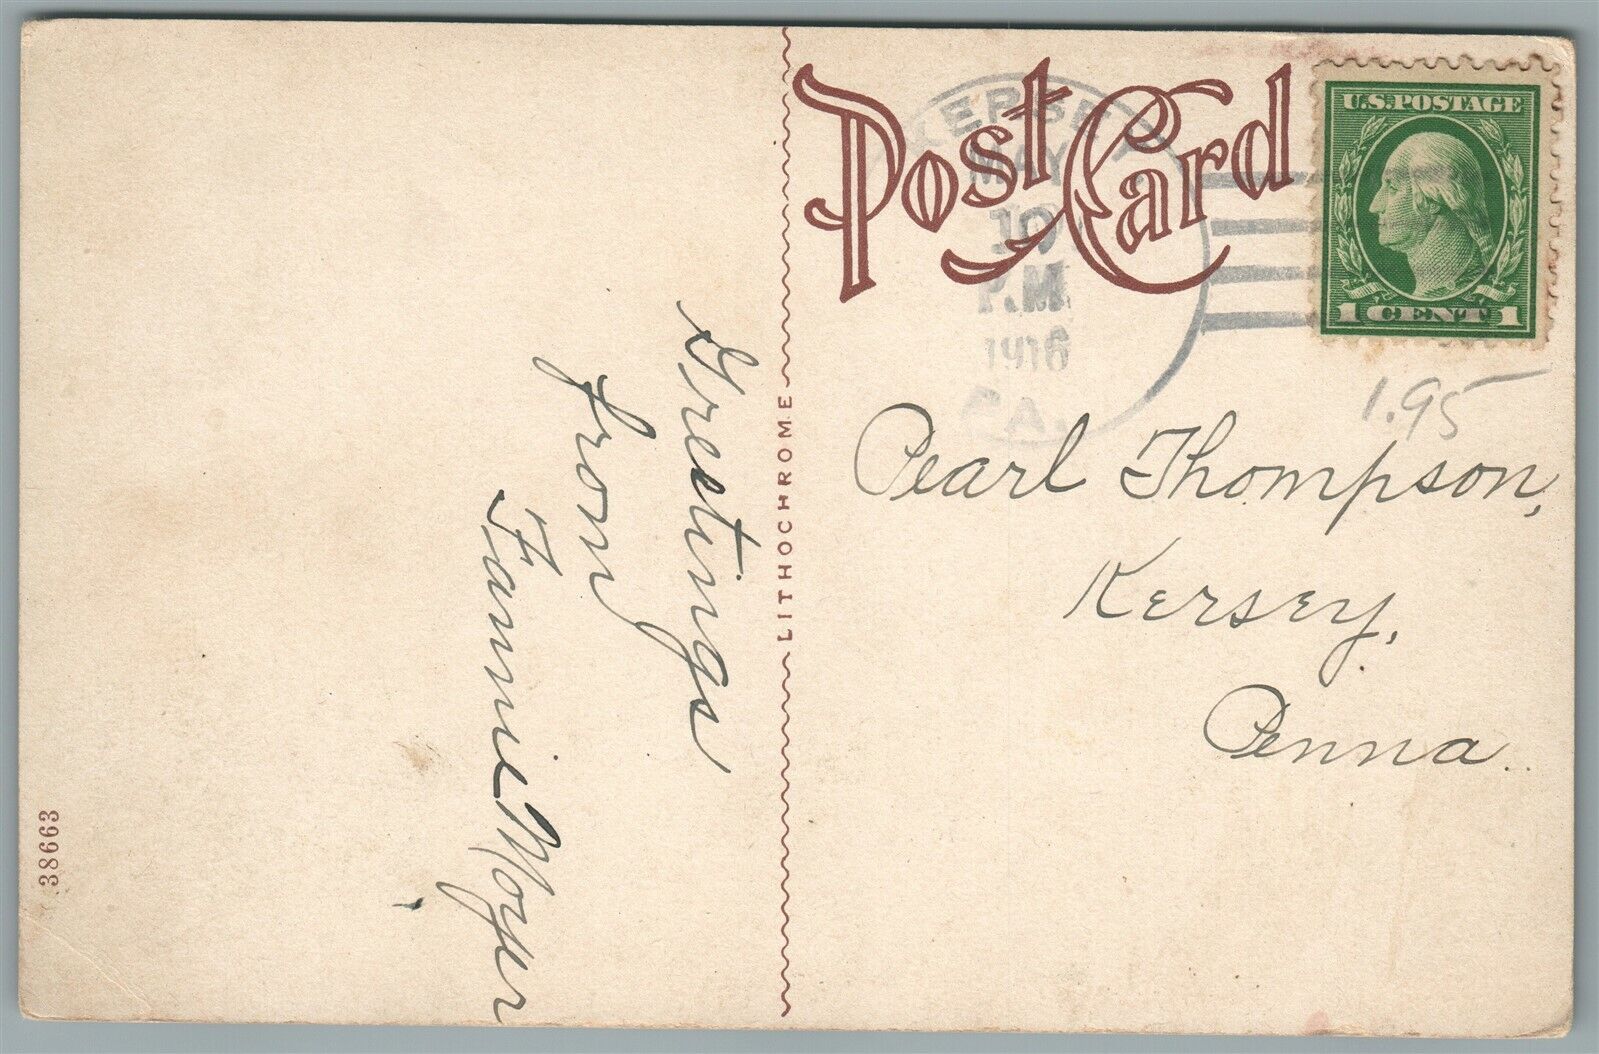 Post Card
KERSEY
MAY
10
P.M.
1916
PA.
U.S. POSTAGE
1 CENT 1
1.95
Pearl Thompson,
Kersey,
Penna.
LITHOCHROME
Greetings
from
Fannie Moyer
38663